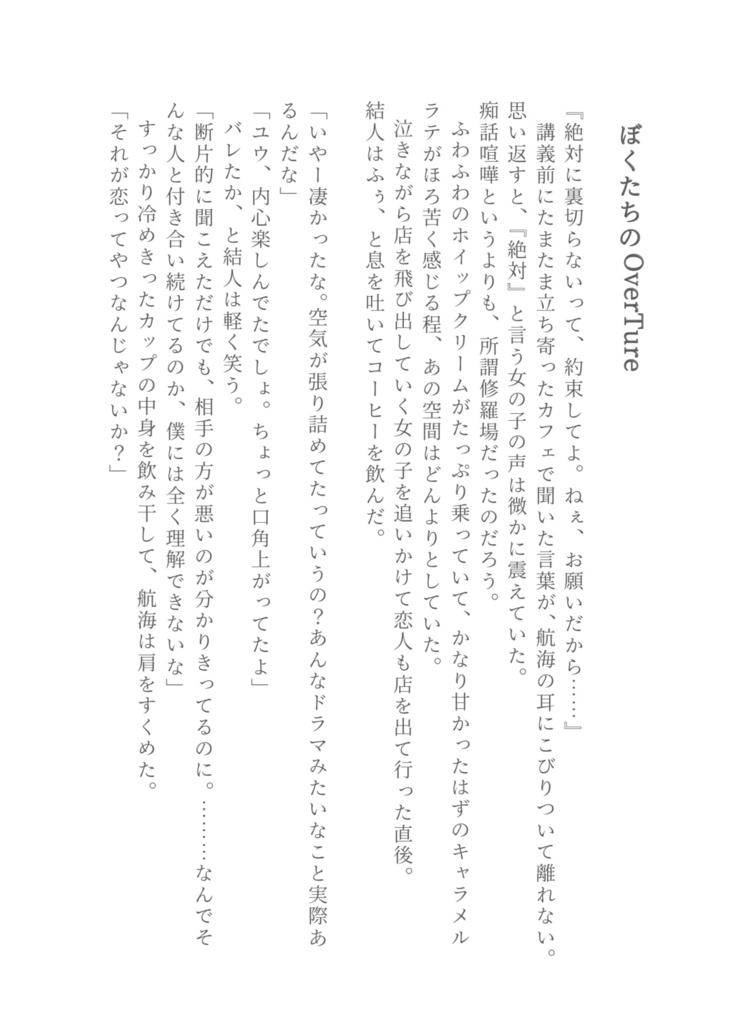 ぼくたちのOverTure
『絶対に裏切らないって、約束してよ。ねぇ、お願いだから……』
講義前にたまたま立ち寄ったカフェで聞いた言葉が、航海の耳にこびりついて離れない。
思い返すと、『絶対』と言う女の子の声は微かに震えていた。
痴話喧嘩というよりも、所謂修羅場だったのだろう。
ふわふわのホイップクリームがたっぷり乗っていて、かなり甘かったはずのキャラメル
ラテがほろ苦く感じる程、あの空間はどんよりとしていた。
泣きながら店を飛び出していく女の子を追いかけて恋人も店を出て行った直後。
結人はふぅ、と息を吐いてコーヒーを飲んだ。
「いやー凄かったな。空気が張り詰めてたっていうの？あんなドラマみたいなこと実際あ
るんだな」
「ユウ、内心楽しんでたでしょ。ちょっと口角上がってたよ」
バレたか、と結人は軽く笑う。
「断片的に聞こえただけでも、相手の方が悪いのが分かりきってるのに。………なんでそ
んな人と付き合い続けてるのか、僕には全く理解できないな」
すっかり冷めきったカップの中身を飲み干して、航海は肩をすくめた。
「それが恋ってやつなんじゃないか？」